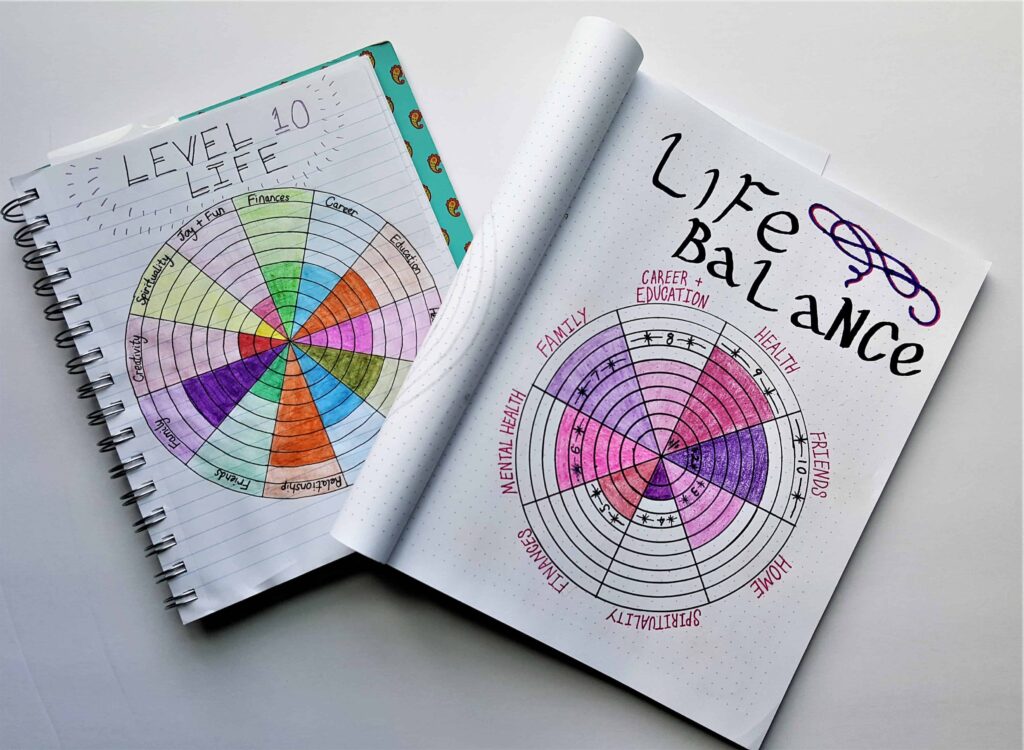 LEVEL 10
LIFE
Finances
Career
Education
Joy + Fun
Spirituality
Creativity
Family
Friends
Relationship
LiFe
BaLaNCe
CAREER +
EDUCATION
HEALTH
FRIENDS
HOME
SPIRITUALITY
FINANCES
MENTAL HEALTH
FAMILY
8
9
10
3
4
5
6
7